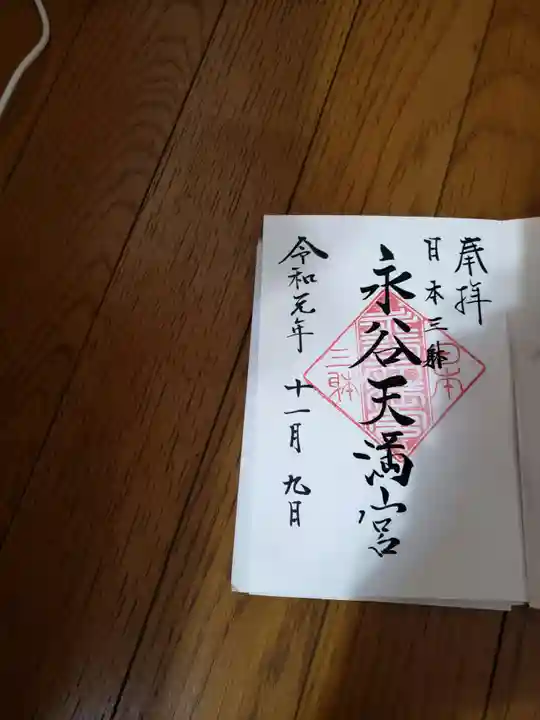 奉拝
日本三躰
永谷天満宮
日本
三躰
令和元年 十一月 九日